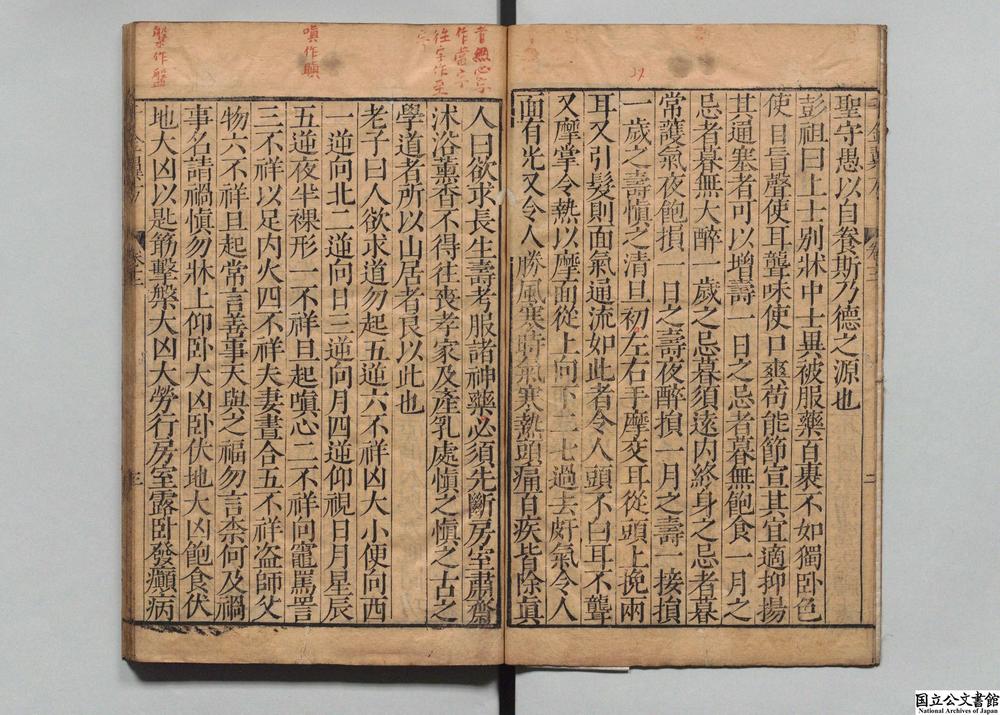 聖守愚以自養斯乃德之源也
彭祖曰上士别牀中士異被服藥百裹不如獨卧色
使目盲聲使耳聾味使口爽苟能節宣其宜適抑揚
其通塞者可以增壽一日之忌者暮無飽食一月之
忌者暮無大醉一歲之忌暮須遠内終身之忌者暮
常護氣夜飽損一日之壽夜醉損一月之壽一接損
一歲之壽慎之清旦初左右手摩交耳從頭上挽兩
耳又引髮則面氣通流如此者令人頭不白耳不聾
又摩掌令熱以摩面從上向下二七過去皯氣令人
面有光又令人勝風寒時氣寒熱頭痛百疾皆除真
二
人曰欲求長生壽考服諸神藥必須先斷房室肅齋
沐浴薰香不得往喪孝家及產乳處慎之慎之古之
學道者所以山居者良以此也
老子曰人欲求道勿起五逆六不祥凶大小便向西
一逆向北二逆向日三逆向月四逆仰視日月星辰
五逆夜半裸形一不祥旦起嗔心二不祥向竈罵詈
三不祥以足内火四不祥夫妻晝合五不祥盗師父
物六不祥旦起常言善事天與之福勿言柰何及禍
事名請禍慎勿牀上仰卧大凶卧伏地大凶飽食伏
地大凶以匙筯擊槃大凶大勞行房室露卧發癲病
三
嗔作瞋
槃作盤
国立公文書館
National Archives of Japan